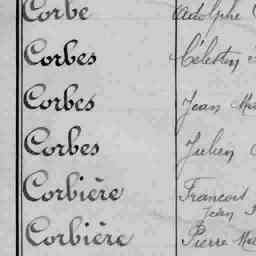 Corbe Adolphe
Corbes Célestin
Corbes Jean
Corbes Julien
Corbière Francois
Jean
Corbière Pierre